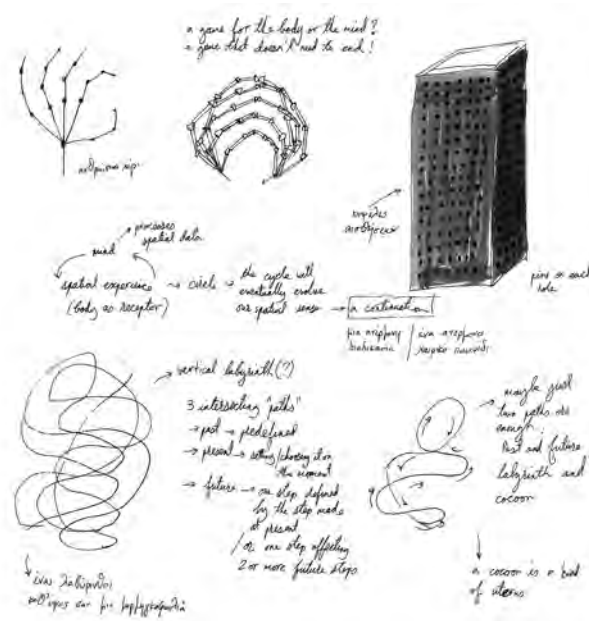 a game for the body or the mind?
a game that doesn't need to end!
processes
spatial data
mind
spatial experience
(body as receptor)
→ circle →
the cycle will
eventually evolve
our spatial sense
→ a continuation
pins on each
hole
→ vertical labyrinth (?)
3 intersecting "paths"
→ past → predefined
→ present → setting/choosing it on
the moment
→ future → one step defined
by the step made
at present
/or one step affecting
2 or more future steps
ένας λαβύρινθος
σαν μια
maybe just
two paths are
enough.
Past and future
labyrinth and
cocoon
a cocoon is a kind
of uterus